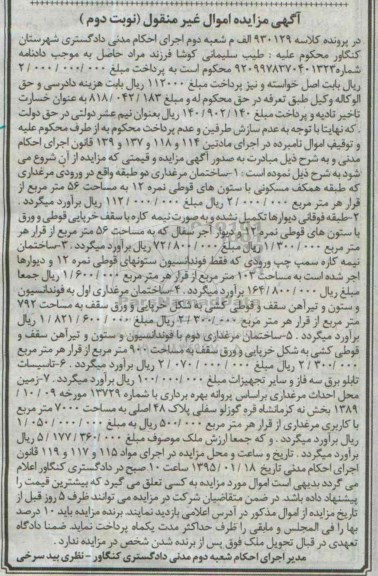 آگهی مزایده اموال غیر منقول (نوبت دوم)
در پرونده کلاسه ۹۳۰۱۲۹ الف م شعبه دوم اجرای احکام مدنی دادگستری شهرستان
کنگاور محکوم علیه : طیب سلیمانی کوشا فرزند مراد حاصل به موجب دادنامه
شماره ۹۲۰۹۹۷۸۳۷۰۴۰۱۳۲۳ محکوم است به پرداخت مبلغ ۲/۰۰۰/۰۰۰/۰۰۰
ریال بابت اصل خواسته و نیز پرداخت مبلغ ۱۱۲۰۰۰ ریال بابت هزینه دادرسی و حق
الوکاله وکیل طبق تعرفه در حق محکوم له و مبلغ ۸۱۸/۰۴۲/۱۸۳ به عنوان خسارت
تاخیر تادیه و پرداخت مبلغ ۱۴۰/۹۰۲/۱۴۰ ریال بعنوان نیم عشر دولتی در حق دولت
. که نهایتا با توجه به عدم سازش طرفین و عدم پرداخت محکوم به از طرف محکوم علیه
و توقیف اموال نامبرده در اجرای مادتین ۱۱۴ و ۱۱۸ و ۱۳۷ و ۱۳۹ قانون اجرای احکام
مدنی و به شرح ذیل مبادرت به صدور آگهی مزایده و قیمتی که مزایده از آن شروع می
شود به شرح ذیل نموده است : ۱-ساختمان مرغداری دو طبقه واقع در ورودی مرغداری
که طبقه همکف مسکونی با ستون های قوطی نمره ۱۲ به مساحت ۵۶ متر مربع از
قرار هر متر مربع ۲/۰۰۰/۰۰۰ ریال مبلغ ۱۱۲/۰۰۰/۰۰۰ ریال برآورد میگردد .
۲-طبقه فوقانی دیوارها تکمیل نشده و به صورت نیمه کاره با سقف خرپایی قوطی و ورق
با ستون های قوطی نمره ۱۲ و دیوار آجر سفال که به مساحت ۵۶ متر مربع از قرار هر
متر مربع ۱/۳۰۰/۰۰۰ ریال مبلغ ۷۲/۸۰۰/۰۰۰ ریال برآورد میگردد . ۳-ساختمان
نیمه کاره سمت چپ ورودی که فقط فونداسیون ستونهای قوطی نمره ۱۲ و دیوارها
اجر شده است به مساحت ۱۰۳ متر مربع از قرار هر متر مربع ۱/۶۰۰/۰۰۰ ریال جمعا
مبلغ ریال ۱۶۴/۸۰۰/۰۰۰ برآورد میگردد . ۴-ساختمان مرغداری اول به فونداسیون
و ستون و تیرآهن سقف و قوطی کشی به شکل خرپایی و ورق سقف به مساحت ۷۹۲
متر مربع از قرار هر متر مربع ۲/۳۰۰/۰۰۰ ریال مبلغ ۱/۸۲۱/۶۰۰/۰۰۰ ریال
برآورد میگردد . ۵-ساختمان مرغداری دوم با فونداسیون و ستون و تیرآهن سقف و
قوطی کشی به شکل خرپایی و ورق سقف به مساحت ۹۰۰ متر مربع از قرار هر متر مربع
۲/۳۰۰/۰۰۰ ریال مبلغ ۲/۰۷۰/۰۰۰/۰۰۰ ریال برآورد میگردد . ۶-تاسیسات
تابلو برق سه فاز و سایر تجهیزات مبلغ ۱۰۰/۰۰۰/۰۰۰ ریال برآورد میگردد . ۷-زمین
محل احداث مرغداری براساس پروانه بهره برداری با شماره ۱۳۷۲۹ مورخه ۰۹/۱۰/
۱۳۸۹ بخش نه کرمانشاه قره گوزلو سفلی پلاک ۴۸ اصلی به مساحت ۷۰۰۰ متر مربع
با کاربری مرغداری از قرار هر متر مربع ۵۰۰/۰۰۰ ریال به مبلغ ۱/۰۵۰/۰۰۰/۰۰۰
ریال برآورد میگردد . و که جمعا ارزش ملک موصوف مبلغ ۵/۱۷۷/۳۶۰/۰۰۰ ریال
برآورد میگردد . تاریخ و ساعت و محل مزایده در اجرای مواد ۱۱۵ و ۱۱۷ و ۱۱۹ قانون
اجرای احکام مدنی تاریخ ۱۳۹۵/۰۱/۱۸ ساعت ۱۰ صبح در دادگستری کنگاور اعلام
می گردد بدیهی است اموال مورد مزایده به کسی تعلق می گیرد که بیشترین قیمت را
پیشنهاد داده باشد. در ضمن متقاضیان شرکت در مزایده می توانند ظرف ۵ روز قبل از
تاریخ مزایده از اموال مذکور در آدرس اعلامی بازدید نمایند. برنده مزایده باید ۱۰ درصد
بها را فی المجلس و مابقی را ظرف حداکثر مدت یکماه پرداخت نماید. ضمنا دادگاه
تعهدی در قبال تحویل ملک فوق پس از برنده شدن شخص در مزایده ندارد .
مدیر اجرای احکام شعبه دوم مدنی دادگستری کنگاور - نظری بید سرخی